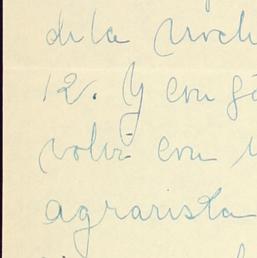 de la noch
12. Y con gó
volví con
agrarista